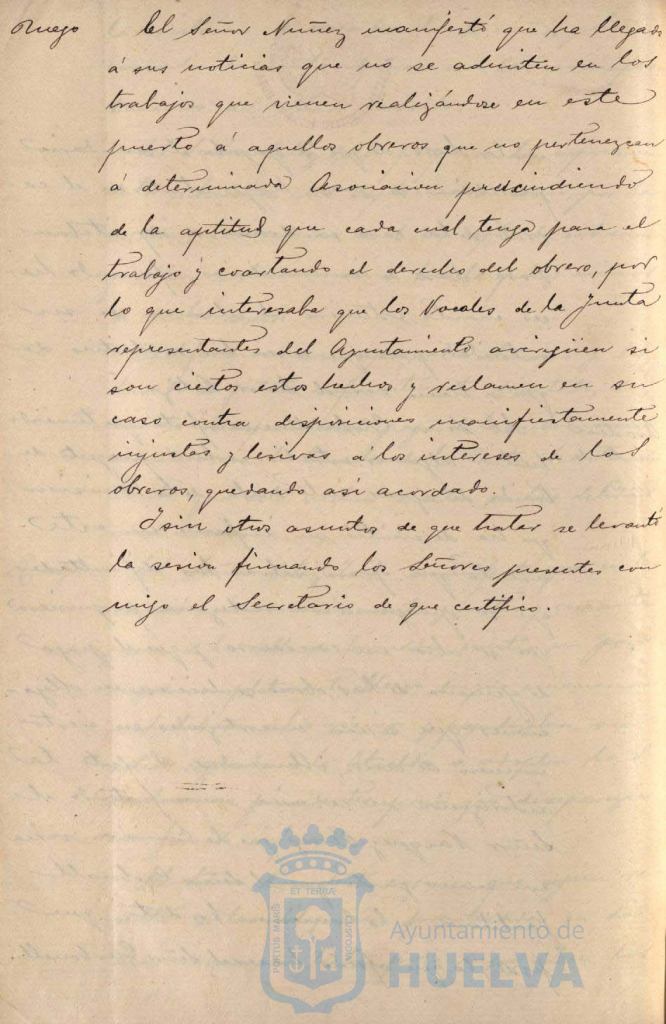 Ruego El Señor Nuñez manifestó que ha llegado
á sus noticias que no se admiten en los
trabajos que vienen realizándose en este
puerto á aquellos obreros que no pertenezcan
á determinada Asociacion prescindiendo
de la aptitud que cada cual tenga para el
trabajo y coartando el derecho del obrero, por
lo que interesaba que los Vocales de la Junta
representantes del Ayuntamiento averigüen si
son ciertos estos hechos y reclamen en su
caso contra disposiciones manifiestamente
injustas y lesivas á los intereses de los
obreros, quedando asi acordado.
Y sin otros asuntos de que tratar se levantó
la sesion firmando los Señores presentes con
migo el Secretario de que certifico.
PORTUS MARIS ET TERRÆ CUSTODIA
Ayuntamiento de
HUELVA